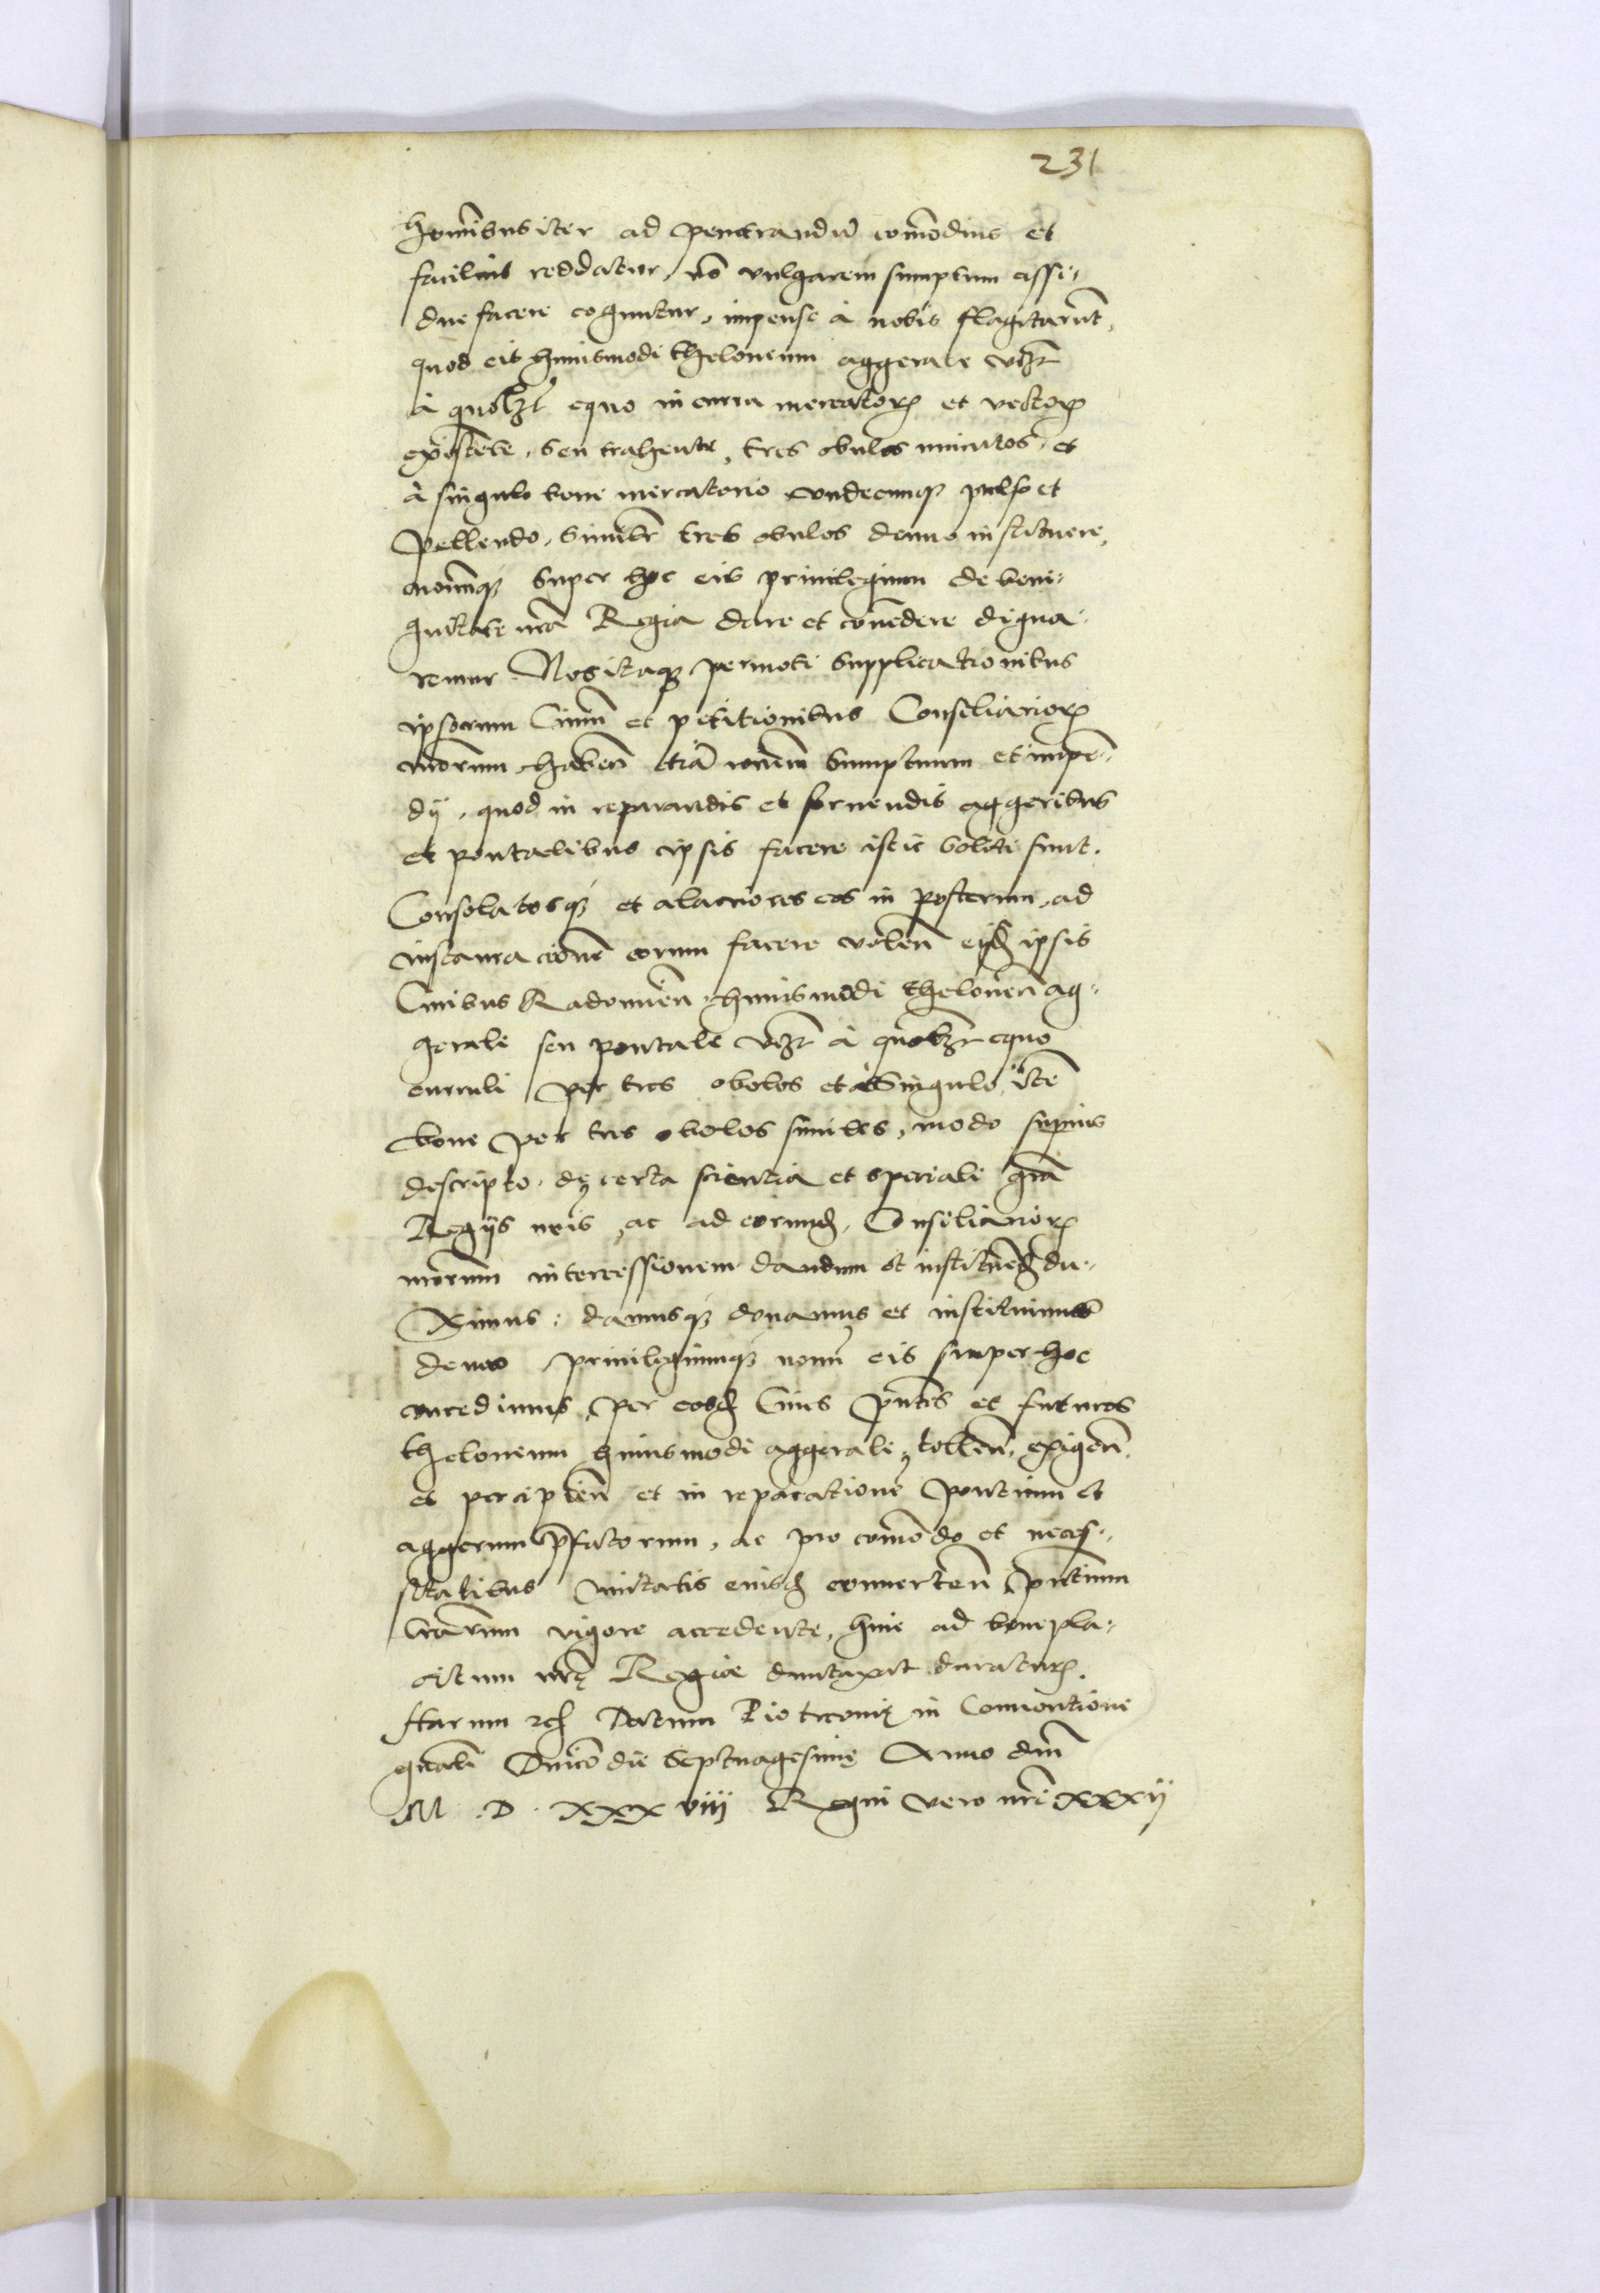 231
hominibus iter ad penetrandũ com̃odius et
facilius reddatur, nõ vulgarem sumptum assi-
due facere coguntur, impense à nobis flagitarũt,
quod eis huiusmodi theloneum aggerale vĩꝫ
à quolꝫt equo in curru mercatorꝝ et vectorꝝ
existẽte, seu trahente, tres obulos minutos, et
à singulo bove mercatorio undecunqꝫ pulso et
pellendo, similr̃ tres obulos denuo instituere,
novumqꝫ super hoc eis privilegium de beni-
gnitate nr̃a Regia dare et concedere digna-
remur Nos itaqꝫ permoti supplicationibus
ipsorum Civiũ et petitionibus Consiliariorꝝ
nr̃orum, haben̄ etiã rationem sumptuum et impẽ-
dij, quod in reparandis et sternendis aggeribus
et pontalibus ipsis facere istic soliti sunt.
Consolatosqꝫ et alacriores eos in posterum, ad
instauracionẽ eorum facere volen̄ eisdem ipsis
Civibus Radomien̄ huiusmodi theloneũ ag-
gerale seu pontale vĩꝫ à quolꝫt equo
curruli per tres obolos et à singulo itẽ
bove per tres obolos similes, modo supius
descripto, de certa scientia et speciali gr̃a
Regijs nr̃is, ac ad eorundẽ, Consiliariorꝝ
nr̃orum intercessionem dandum et instituẽd̃ du-
ximus: damusqꝫ donamus et instituimus
denuo privilegiumqꝫ novũ eis super hoc
concedimus, per eosdẽ Cives pñtes et futuros
theloneum huiusmodi aggerale, tollen̄, exigen̄,
et percipien̄ et in reparationẽ pontium et
aggerum p̃fatorum, ac pro com̃odo et neces-
sitatibus civitatis eiusdẽ converten̄ pñtium
l̃rarum vigore accedente, hinc ad benepla-
citum nr̃ę Regiae duntaxat duraturꝝ.
Harum &c̃ Datum Piotrcovię in Conventione
gñali Dñico die Septuagesimę Anno dñi
M . D . XXX viij Regni vero nr̃i xxxij